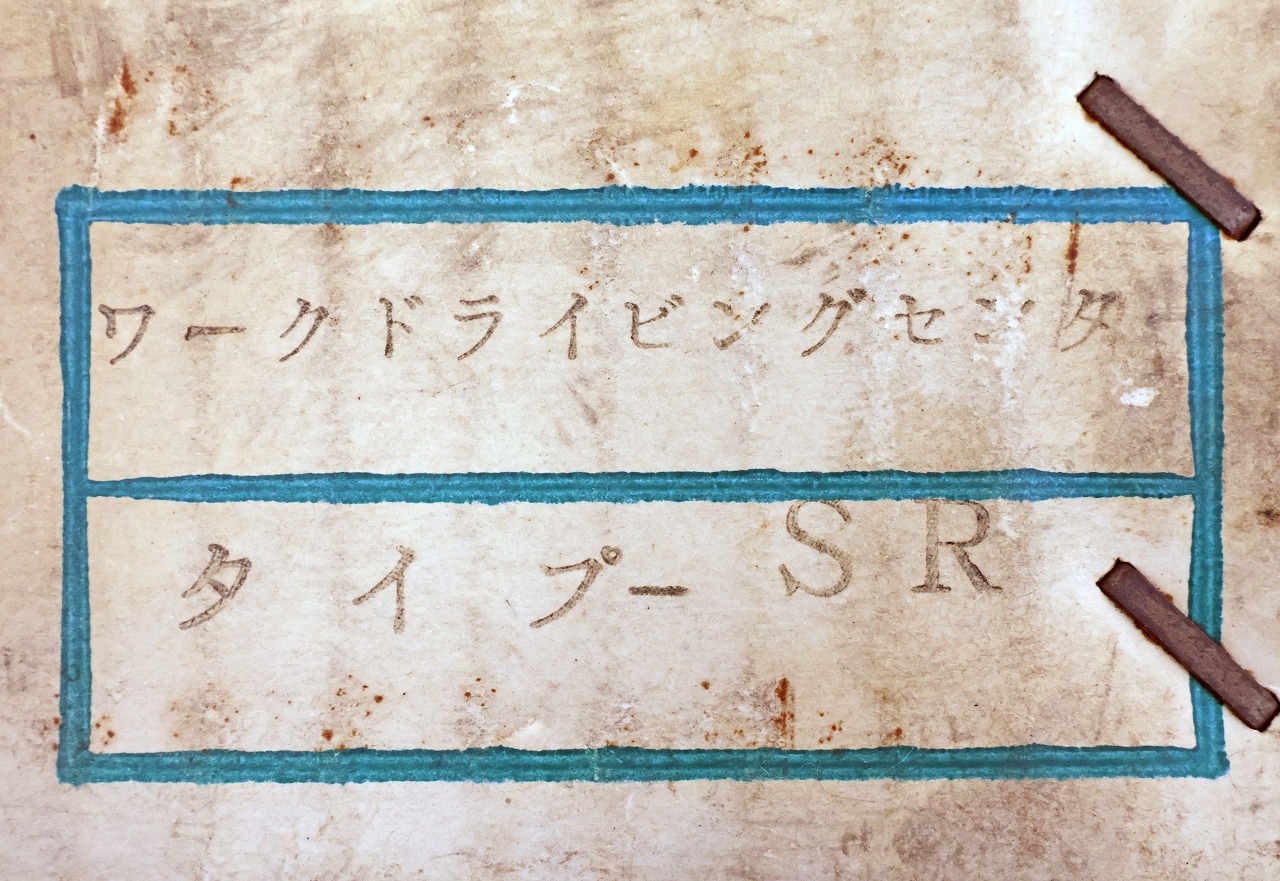 ワークドライビングセンター
タイプー SR